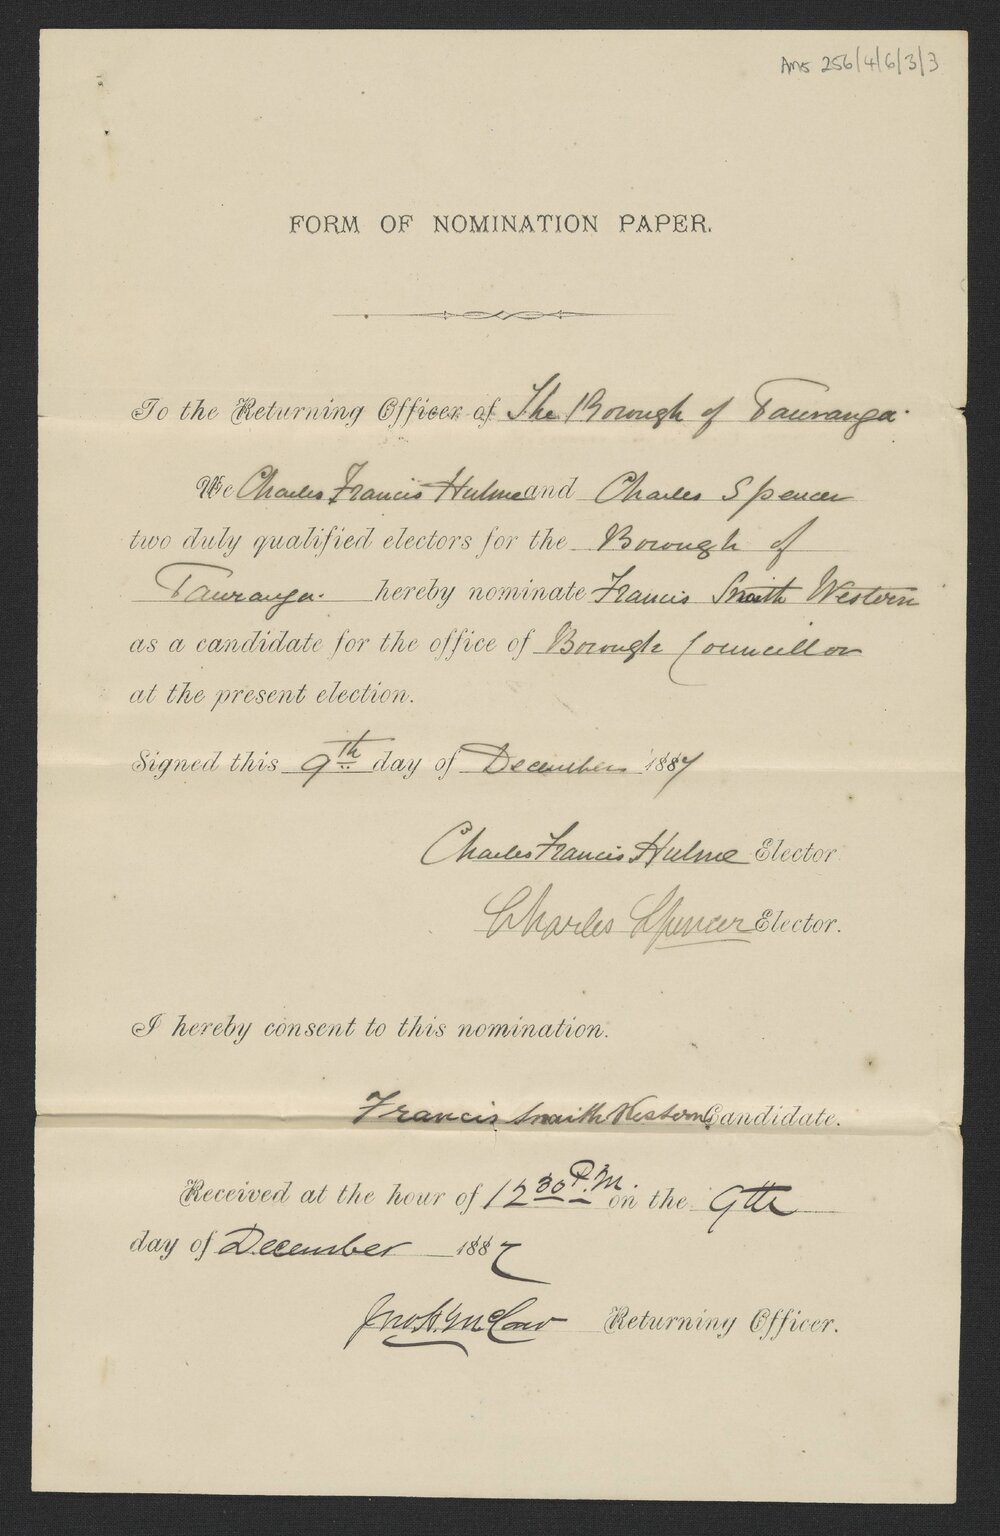 Ams 256/4/6/3/3
FORM OF NOMINATION PAPER.
To the Returning Officer of The Borough of Tauranga.
We Charles Francis Hulme and Charles Spencer
two duly qualified electors for the Borough of
Tauranga. hereby nominate Francis Smith Western
as a candidate for the office of Borough Councillor
at the present election.
Signed this 9th day of December 1887
Charles Francis Hulme Elector.
Charles Spencer Elector.
I hereby consent to this nomination.
Francis Western Candidate.
Received at the hour of 12 30 P.M. on the 9th
day of December 1887
Returning Officer.